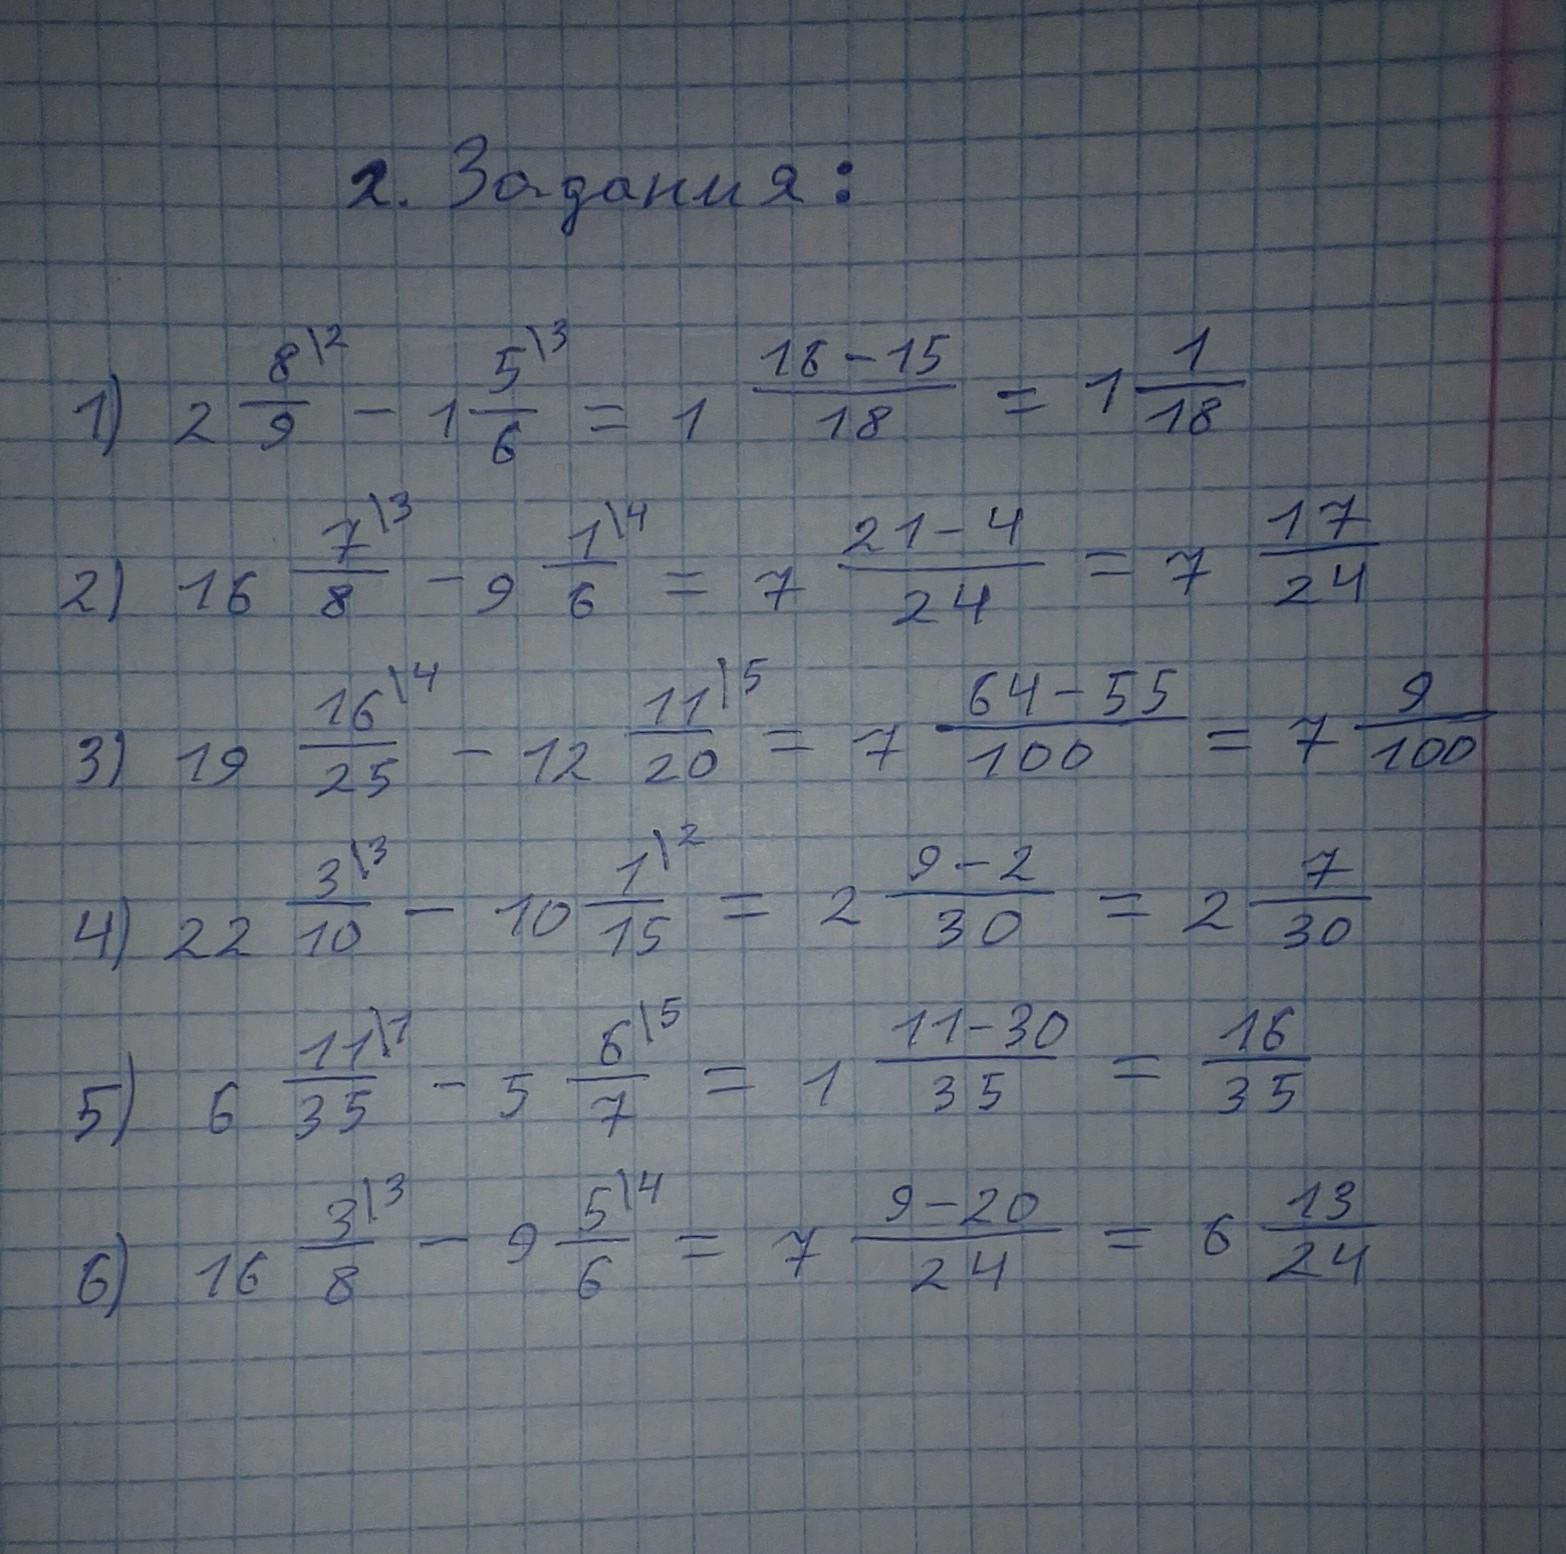 2. Задания:
1) 2 8\2/9 - 1 5\3/6 = 1 (16-15)/18 = 1 1/18
2) 16 7\3/8 - 9 1\4/6 = 7 (21-4)/24 = 7 17/24
3) 19 16\4/25 - 12 11\5/20 = 7 (64-55)/100 = 7 9/100
4) 22 3\3/10 - 10 1\2/15 = 2 (9-2)/30 = 2 7/30
5) 6 11\1/35 - 5 6\5/7 = 1 (11-30)/35 = 16/35
6) 16 3\3/8 - 9 5\4/6 = 7 (9-20)/24 = 6 13/24